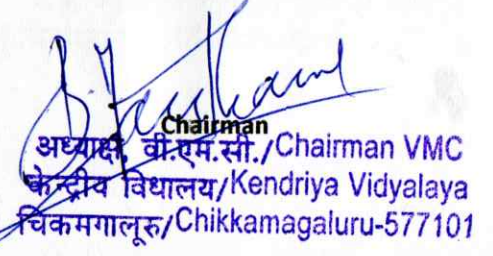 Chairman
अध्यक्ष, वी.एम.सी./Chairman VMC
केन्द्रीय विधालय/Kendriya Vidyalaya
चिकमगालूरु/Chikkamagaluru-577101